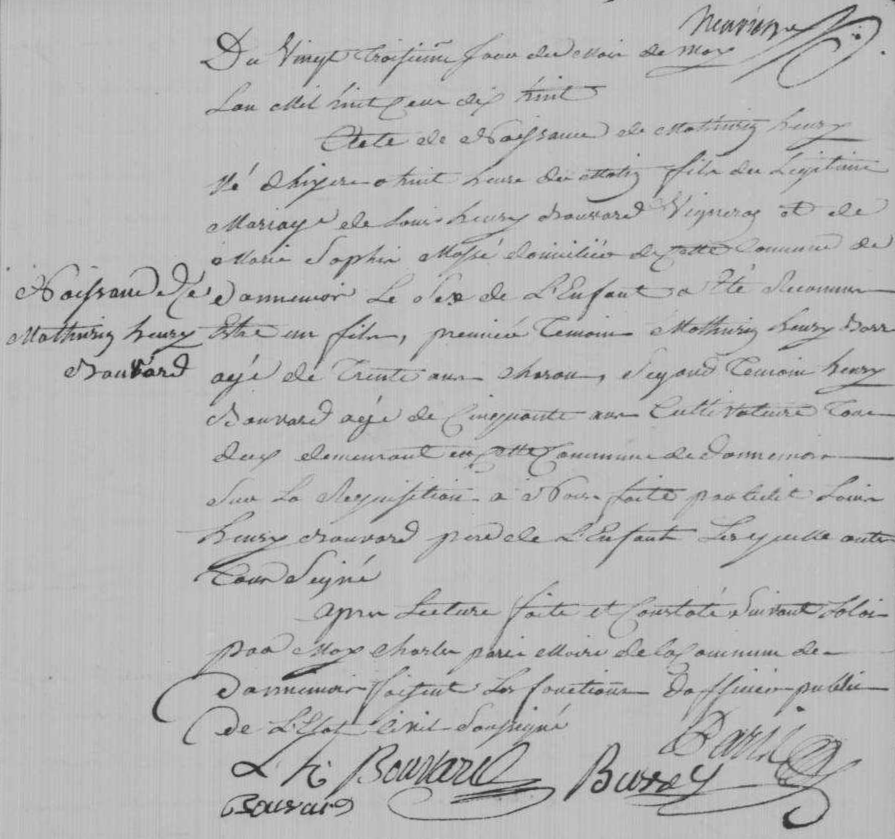 Du Vingt Troisième Jour du Mois de may
Lan Mil huit Cent dix huit
Acte de Naissance de Mathurin henry
Né d'hiyere a huit heure du Matin fils du Legitime
Mariage de Louis henry Bouvard Vigneron et de
Marie Sophie Massé domiciliée de Cette Commune de
Naissance De
dannemoir Le Sexe de L'Enfant a Eté Reconnu
Mathurin henry
Etre un fils, premiere Temoin Mathurin henry
Bouvard
agé de Trente ans, Segond Temoin henry
Bouvard agé de Cinquante ans Cultivateure Tous
deux demeurant en Cette Commune de dannemoir
Sur La Requisition a Nous faite par ledit Louis
henry Bouvard pere de L'Enfant Lesquelle
Tous Seigné
apres Lecture faite et Constaté Suivant La loi
par Moy Charles paris Maire de la Commune de
dannemoir faisent Les fonctions dofficier public
de L'Etat Civil Soussigné
Paris
L h Bouvard
Bouvard